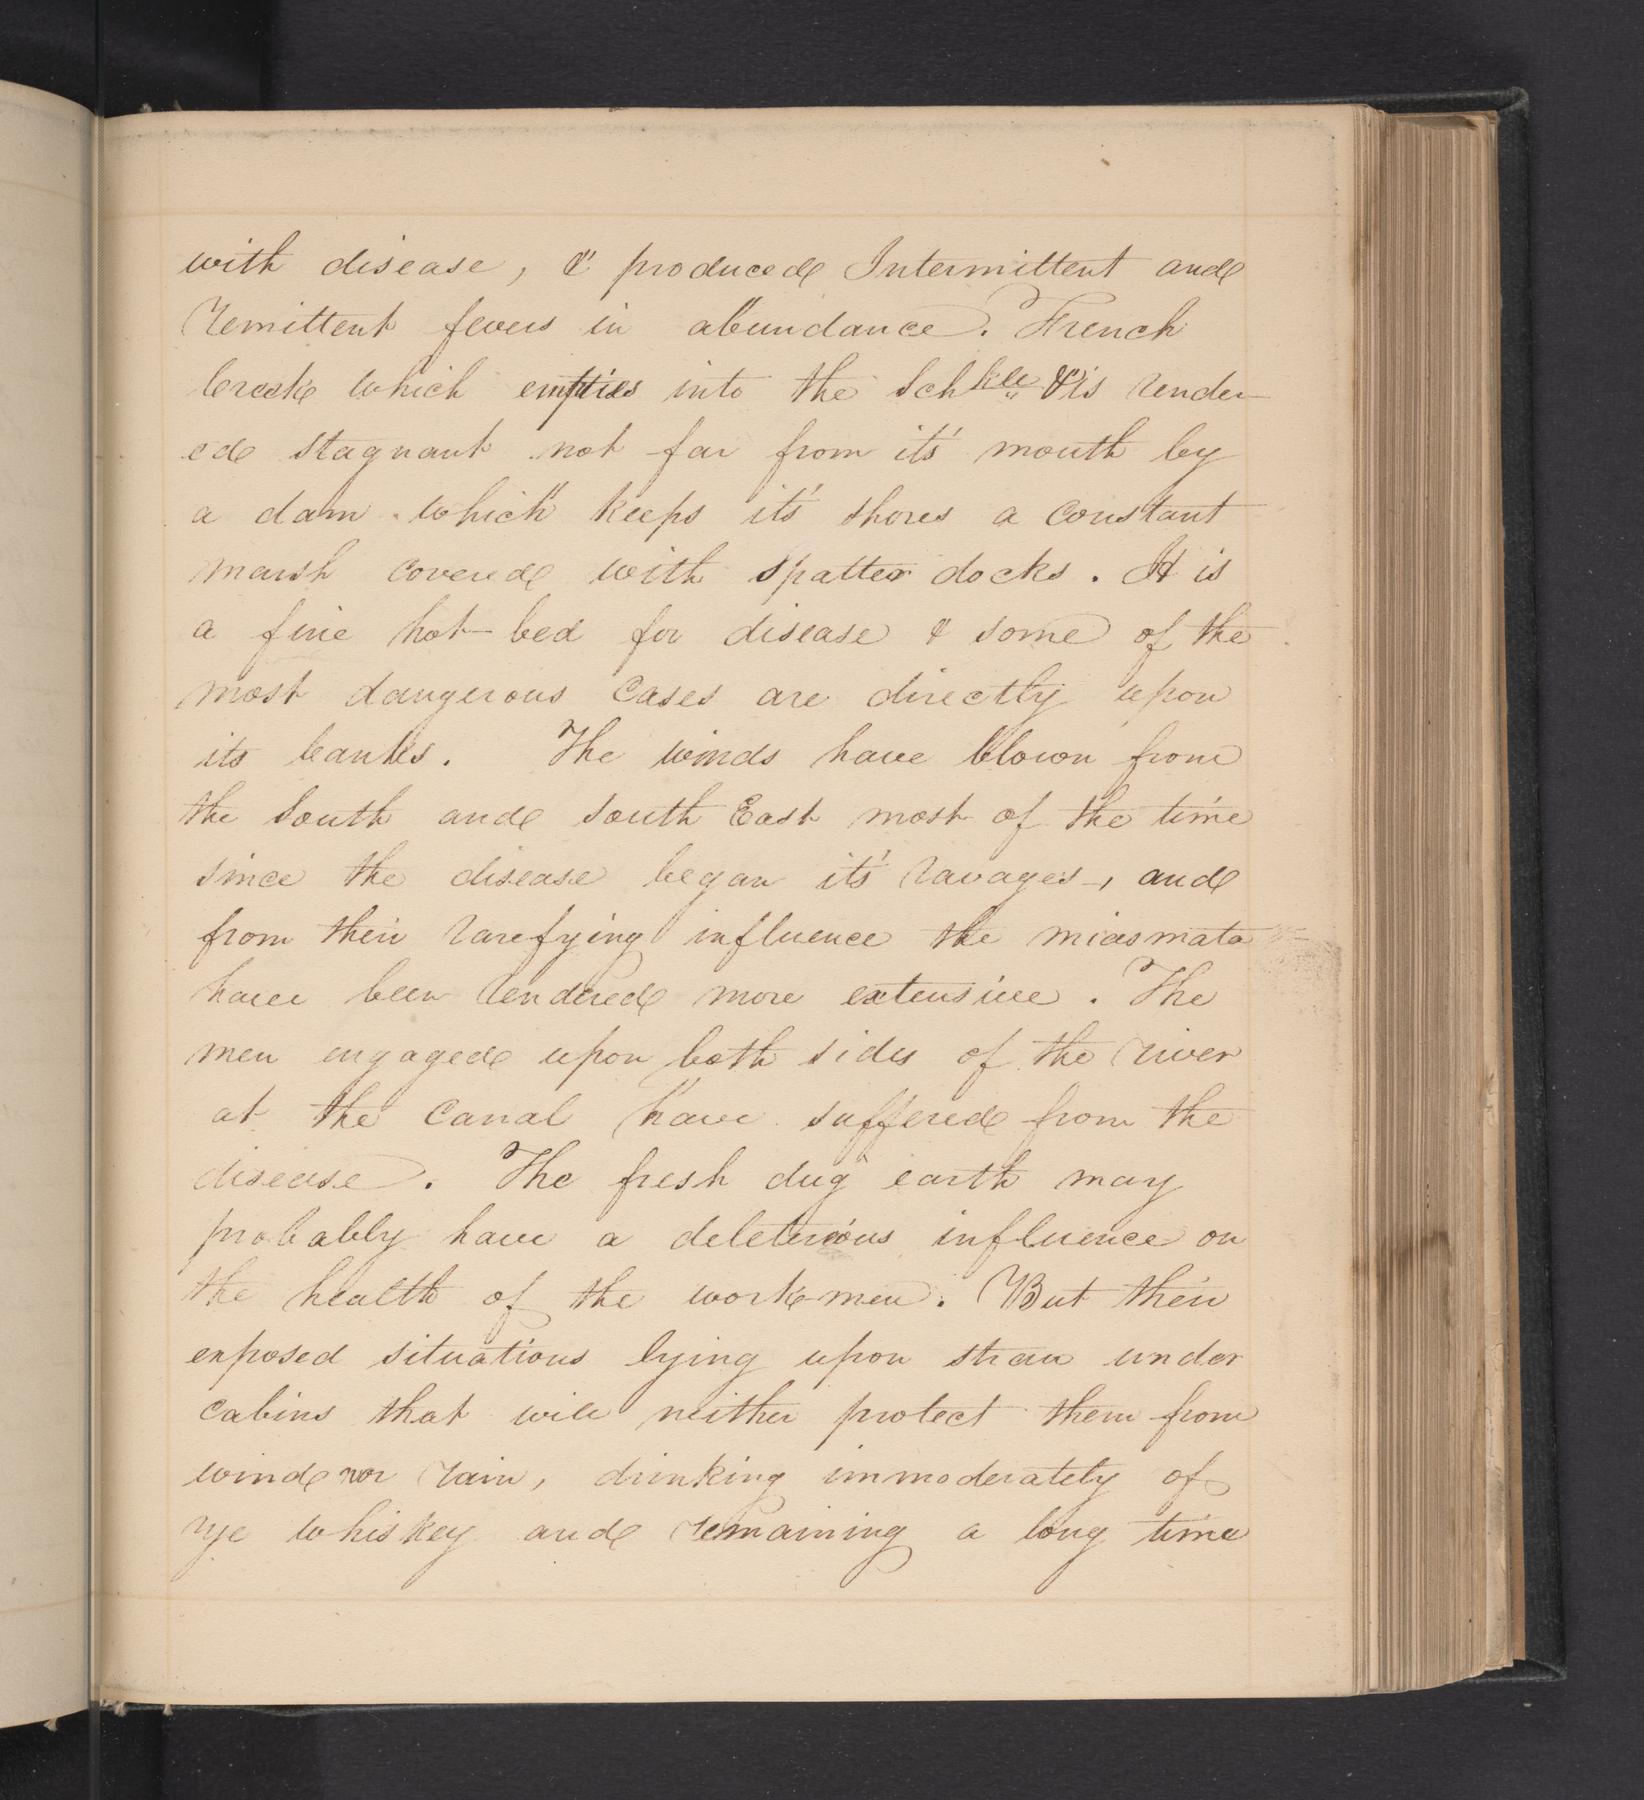 with disease, & produced Intermittent and
remittent fevers in abundance. French
Creek which empties into the Schkll & is render-
ed stagnant not far from it's mouth by
a dam which keeps it's shores a constant
marsh covered with spatter docks. It is
a fine hot-bed for disease & some of the
most dangerous cases are directly upon
its banks. The winds have blown from
the South and South East most of the time
since the disease began it's ravages, and
from their rarefying influence the miasmata
have been rendered more extensive. The
men engaged upon both sides of the river
at the canal have suffered from the
disease. The fresh dug earth may
probably have a deleterious influence on
the health of the work-men. But their
exposed situations lying upon straw under
cabins that will neither protect them from
wind nor rain, drinking immoderately of
rye whiskey and remaining a long time